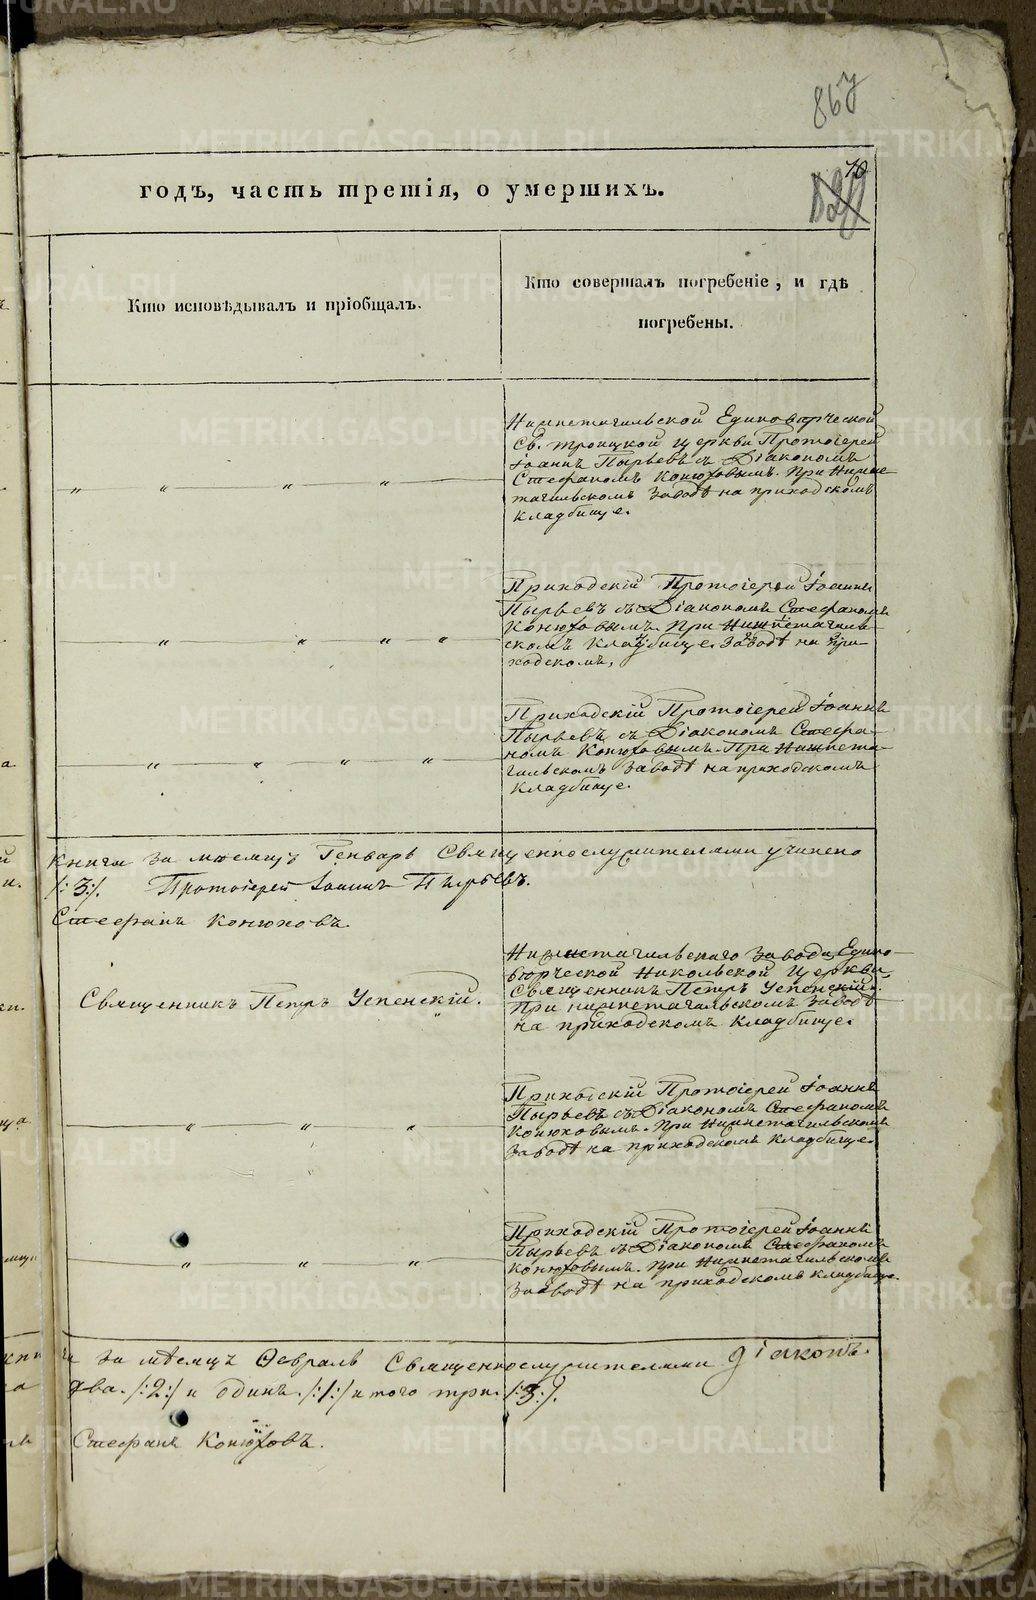 867
70
годъ, часть третія, о умершихъ.
Кто исповѣдывалъ и пріобщалъ.
Кто совершалъ погребеніе, и гдѣ
погребены.
Нижнетагильской Единовѣрческой
Св. Троицкой церкви Протоіерей
Іоаннъ Пырьевъ съ Діакономъ
Стефаномъ Конюховымъ. При Нижне-
тагильскомъ Заводѣ на приходскомъ
кладбище.
Приходскій Протоіерей Іоаннъ
Пырьевъ съ Діакономъ Стефаномъ
Конюховымъ При Нижнетагиль-
скомъ Кладбище. Заводѣ на при-
ходскомъ,
Приходскій Протоіерей Іоаннъ
Пырьевъ съ Діакономъ Стефа-
номъ Конюховымъ. При Нижнета-
гильскомъ Заводѣ на приходскомъ
кладбище.
книги за мѣсяцъ Генварь Священнослужителями учинено
/:3:/. Протоіерей Іоаннъ Пырьевъ.
Стефанъ Конюховъ.
Священникъ Петръ Успенскій.
Нижнетагильскаго завода Едино-
вѣрческой Никольской церкви
Священникъ Петръ Успенскій.
При нижнетагильскомъ Заводѣ
на приходскомъ кладбище.
Приходскій Протоіерей Іоаннъ
Пырьевъ съ Діакономъ Стефаномъ
Конюховымъ. При Нижнетагильскомъ
Заводѣ на приходскомъ кладбище.
Приходскій Протоіерей Іоаннъ
Пырьевъ съ Діакономъ Стефаномъ
Конюховымъ. При Нижнетагильскомъ
Заводѣ на приходскомъ кладбище.
за мѣсяцъ Февраль Священнослужителями діаконъ.
два. /:2:/ и одинъ. /:1:/ итого три. /:3:/.
Стефанъ Конюховъ.
METRIKI.GASO-URAL.RU